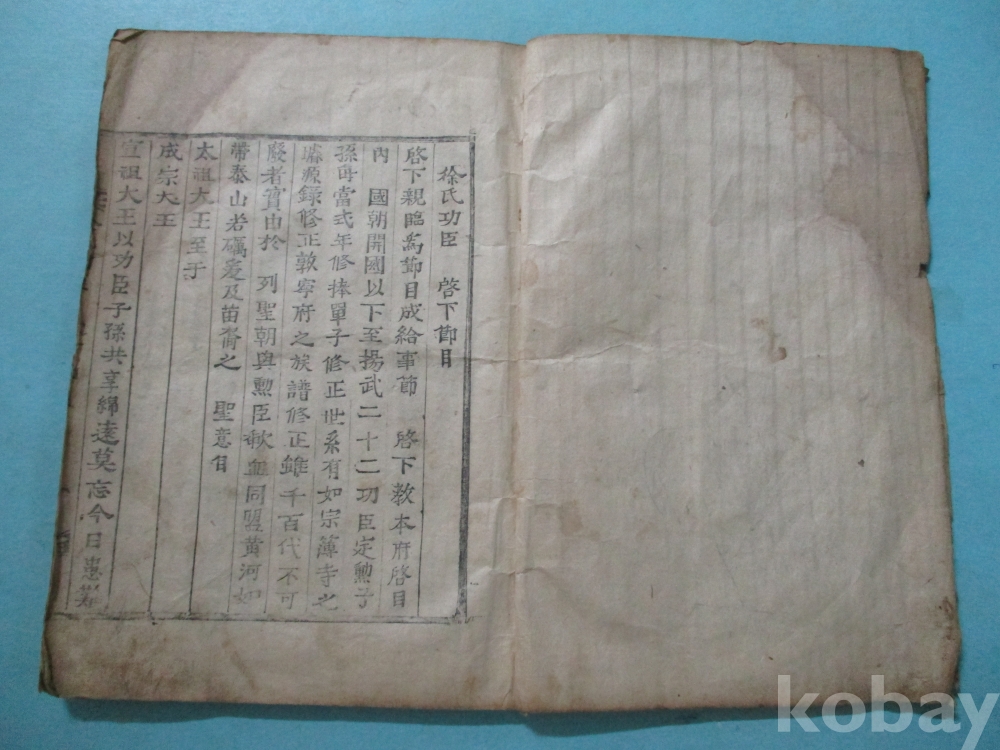 徐氏功臣 啓下節目
啓下親臨爲節目成給事節 啓下敎本府啓目
內 國朝開國以下至揚武二十二功臣定勲子
孫每當式年修捧單子修正世系有如宗簿寺之
璿源錄修正敦寧府之族譜修正雖千百代不可
廢者實由於 列聖朝與勲臣歃血同盟黃河如
帶泰山若礪爰及苗裔之 聖意自
太祖大王至于
成宗大王
宣祖大王以功臣子孫共享綿遠莫忘今日患難
kobay